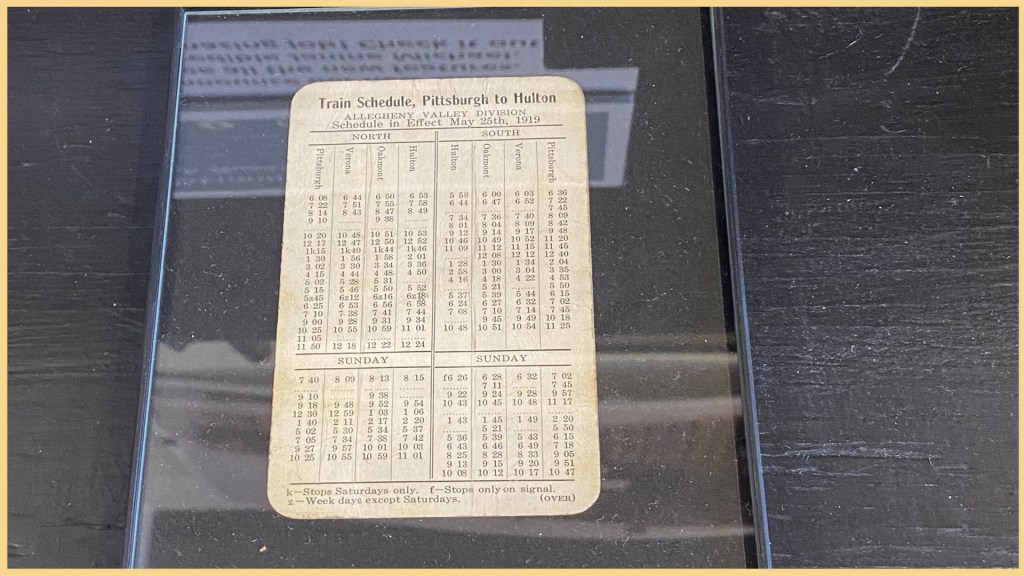 Train Schedule, Pittsburgh to Hulton
ALLEGHENY VALLEY DIVISION
Schedule in Effect May 25th, 1919
NORTH
Pittsburgh Verona Oakmont Hulton
6 08 6 44 6 50 6 53
7 22 7 51 7 55 7 58
8 14 8 43 8 47 8 49
9 10 ...... 9 38 ......
10 20 10 48 10 51 10 53
12 17 12 47 12 50 12 52
1k15 1k40 1k44 1k46
1 30 1 56 1 58 2 01
3 02 3 30 3 34 3 36
4 15 4 44 4 48 4 50
5 03 5 28 5 31 ......
5 15 5 46 5 50 5 52
5z45 6z12 6z16 6z18
6 25 6 53 6 56 6 58
7 10 7 38 7 41 7 44
9 00 9 28 9 31 9 34
10 25 10 55 10 59 11 01
11 05 ...... ...... ......
11 50 12 18 12 22 12 24
SOUTH
Hulton Oakmont Verona Pittsburgh
5 58 6 00 6 03 6 36
6 44 6 47 6 52 7 22
...... ...... ...... 7 45
7 34 7 36 7 40 8 09
8 01 8 04 8 09 8 42
9 12 9 14 9 17 9 48
10 46 10 49 10 52 11 20
11 09 11 12 11 15 11 45
...... 12 08 12 12 12 40
1 28 1 30 1 34 2 04
2 58 3 00 3 04 3 35
4 16 4 18 4 22 4 53
...... 5 21 ...... 5 50
5 37 5 39 5 44 6 15
6 24 6 27 6 32 7 02
7 08 7 10 7 14 7 45
...... 9 45 9 49 10 18
10 48 10 51 10 54 11 25
SUNDAY
7 40 8 09 8 13 8 15
9 10 ...... 9 38 ......
9 18 9 48 9 52 9 54
12 30 12 59 1 03 1 06
1 40 2 11 2 17 2 20
5 02 5 30 5 34 5 37
7 05 7 34 7 38 7 42
9 27 9 57 10 01 10 03
10 25 10 55 10 59 11 01
SUNDAY
f6 26 6 28 6 32 7 02
...... 7 11 ...... 7 45
9 22 9 24 9 28 9 57
10 43 10 45 10 48 11 17
1 43 1 45 1 49 2 20
...... 5 21 ...... 5 50
5 36 5 39 5 43 6 15
6 43 6 46 6 49 7 18
8 25 8 28 8 33 9 05
9 13 9 15 9 20 9 51
10 08 10 12 10 17 10 47
k—Stops Saturdays only. f—Stops only on signal.
z—Week days except Saturdays. (OVER)